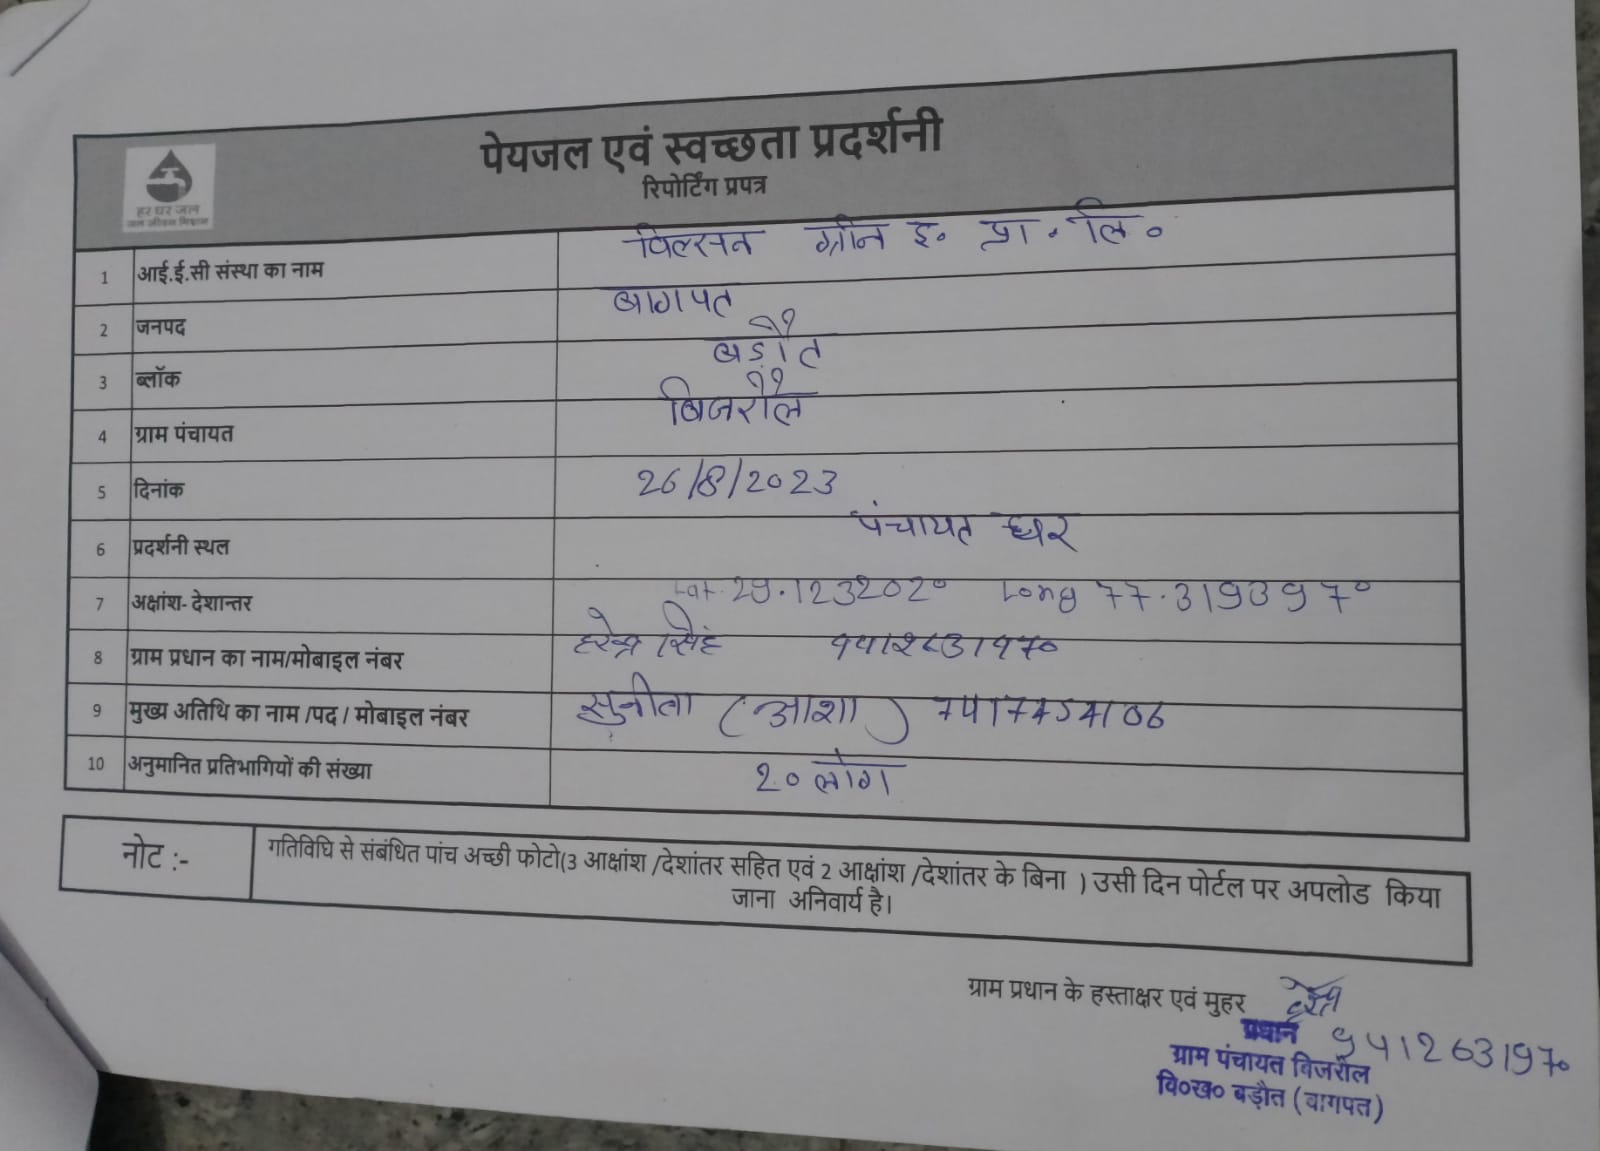 हर घर जल
जल जीवन मिशन
पेयजल एवं स्वच्छता प्रदर्शनी
रिपोर्टिंग प्रपत्र
1 आई.ई.सी संस्था का नाम विल्सन ग्रीन इ० प्रा० लि०
2 जनपद बागपत
3 ब्लॉक बड़ौत
4 ग्राम पंचायत बिजरौल
5 दिनांक 26/8/2023
6 प्रदर्शनी स्थल पंचायत घर
7 अक्षांश- देशान्तर Lat. 29.123202° Long 77.319397°
8 ग्राम प्रधान का नाम/मोबाइल नंबर सिंह
9 मुख्य अतिथि का नाम /पद / मोबाइल नंबर सुनीता (आशा)
10 अनुमानित प्रतिभागियों की संख्या २० लोग
नोट :- गतिविधि से संबंधित पांच अच्छी फोटो(3 आक्षांश /देशांतर सहित एवं 2 आक्षांश /देशांतर के बिना ) उसी दिन पोर्टल पर अपलोड किया
जाना अनिवार्य है।
ग्राम प्रधान के हस्ताक्षर एवं मुहर
प्रधान 9412631970
ग्राम पंचायत बिजरौल
वि०ख० बड़ौत (बागपत)